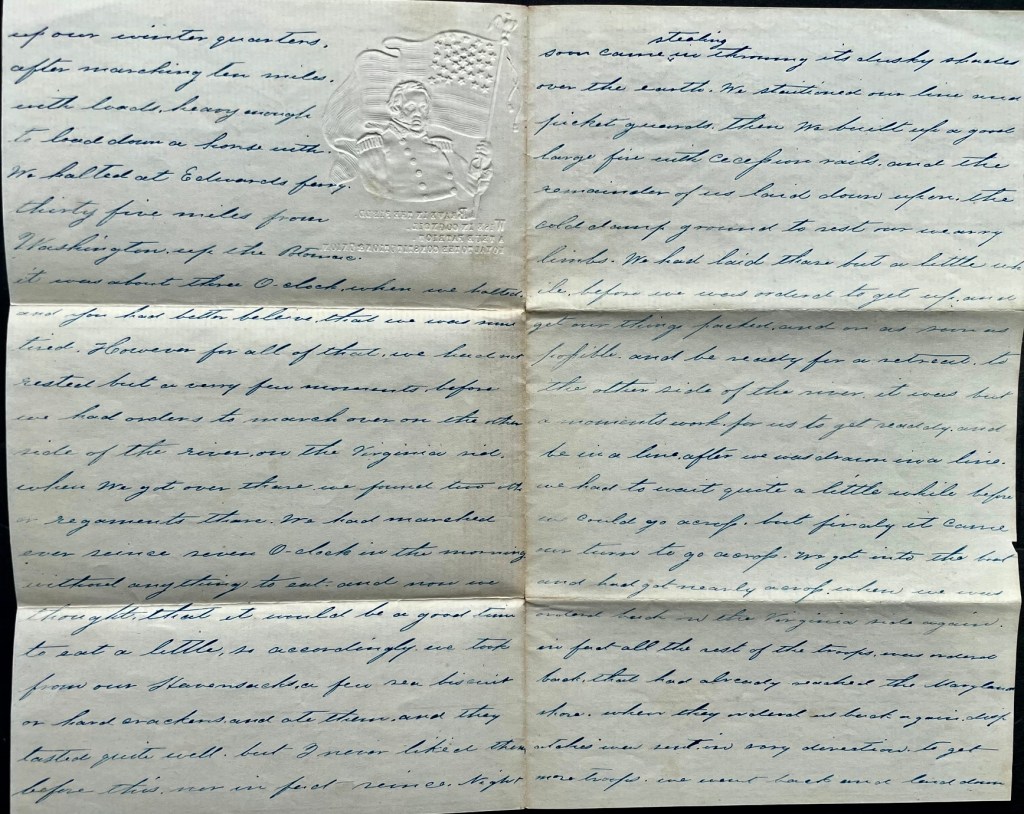 up our winter quarters,
after marching ten miles,
with loads, heavy enough
to load down a horse with.
We halted at Edwards ferry.
thirty five miles from
Washington, up the Potomac.
it was about three O-clock, when we halted,
and you had better beleive, that we was some
tired. However for all of that, we had not
rested but a verry few movements before
we had orders to march over on the other
side of the river, on the Virginia sid.
when We got over thare we found two oth
er regaments thare. We had marched
ever seince seven O-clock in the morning
without anything to eat. and now we
thought, that it would be a good time
to eat a little, so accordingly we took
from our Haversacks, a few sea biscuit
or hard crackers, and ate them, and they
tasted quite well. but I never liked them
before this, nor in fact seince. Night
stealing
soon came in throwing its dusky shades
over the earth. We stationed our line and
picket guards. then We built up a good
large fire with Cecession rails, and the
remainder of us laid down upon, the
cold damp ground to rest our wearry
limbs. We had laid thare but a little wh
ile, before we was orderd to get up, and
get our things packed, and on as soon as
possible. and be ready for a retreat, to
the other side of the river, it was but
a moments work, for us to get readdy, and
be in a line, after we was drawn in a line.
we had to wait quite a little while before
we could go across. but finaly it came
our turn to go across. We got into the boat
and had got nearly across, when we was
orderd back on the Virginia side again.
in fact all the rest of the troops, was orderd
back, that had already reached the Maryland
shore. when they orderd us back again, disp
atches was sent, in evry direction, to get
more troops. we went back and laid down